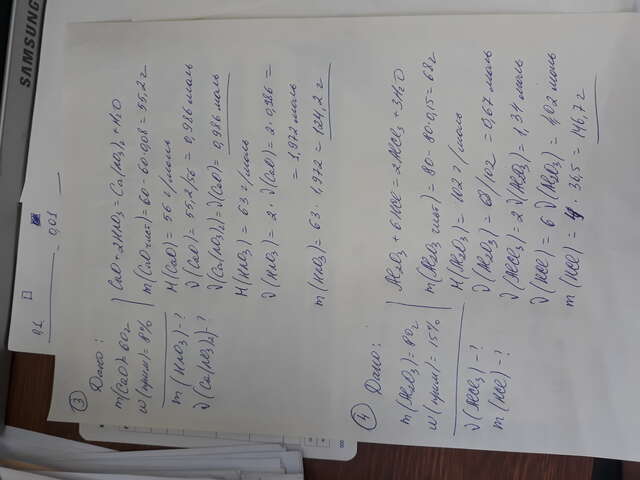 SAMSUNG
0,1
0,01
3
Дано:
m(CaO)=60г
w(прим)=8%
m(HNO₃)-?
ν(Ca(NO₃)₂)-?
CaO+2HNO₃=Ca(NO₃)₂+H₂O
m(CaO чист)=60-60·0,08=55,2г
M(CaO)=56 г/моль
ν(CaO)=55,2/56=0,986 моль
ν(Ca(NO₃)₂)=ν(CaO)=0,986 моль
M(HNO₃)=63 г/моль
ν(HNO₃)=2·ν(CaO)=2·0,986=
=1,972 моль
m(HNO₃)=63·1,972=124,2 г
4
Дано:
m(Al₂O₃)=80г
w(прим)=15%
ν(AlCl₃)-?
m(HCl)-?
Al₂O₃+6HCl=2AlCl₃+3H₂O
m(Al₂O₃ чист)=80-80·0,15=68г
M(Al₂O₃)=102 г/моль
ν(Al₂O₃)=68/102=0,67 моль
ν(AlCl₃)=2ν(Al₂O₃)=1,34 моль
ν(HCl)=6ν(Al₂O₃)=4,02 моль
m(HCl)=4·36,5=146,7 г